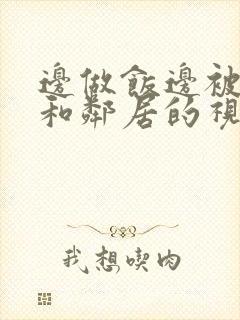 邊做飯邊被
和鄰居的視
我想喫肉